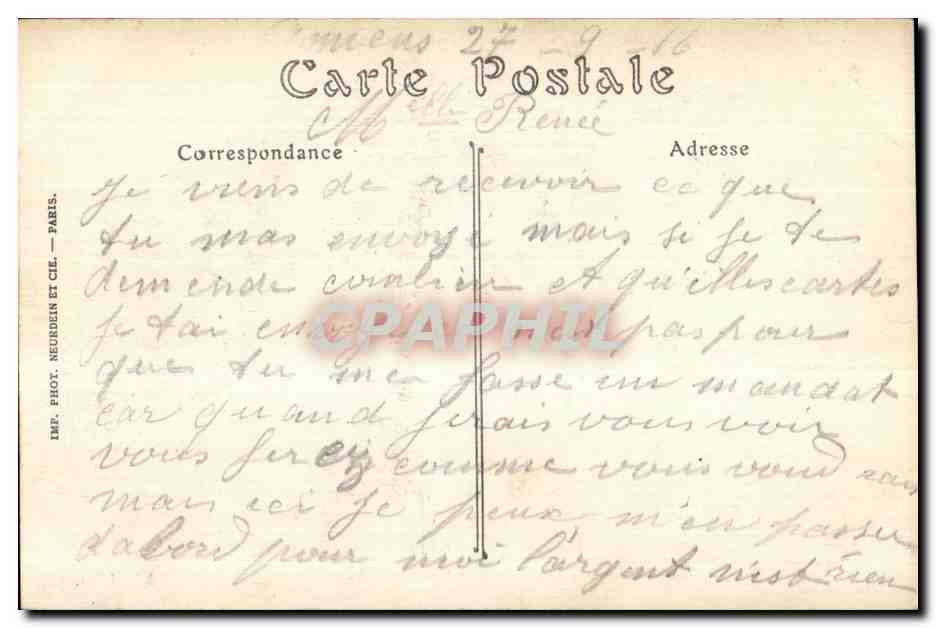 Amiens 27 - 9 - 16
Carte Postale
Melle Renée
Correspondance
Adresse
Je viens de recevoir ce que
tu mas envoyé mais si je te
demende combien et qu'elles cartes
je tai envoyé n'est pas pour
que tu me fasse un mandat
car quand jerais vous voir
vous ferez comme vous voudrais
mais ici je peux m'en passer
dabord pour moi l'argent n'est rien
IMP. PHOT. NEURDEIN ET CIE. — PARIS.
CPAPHIL